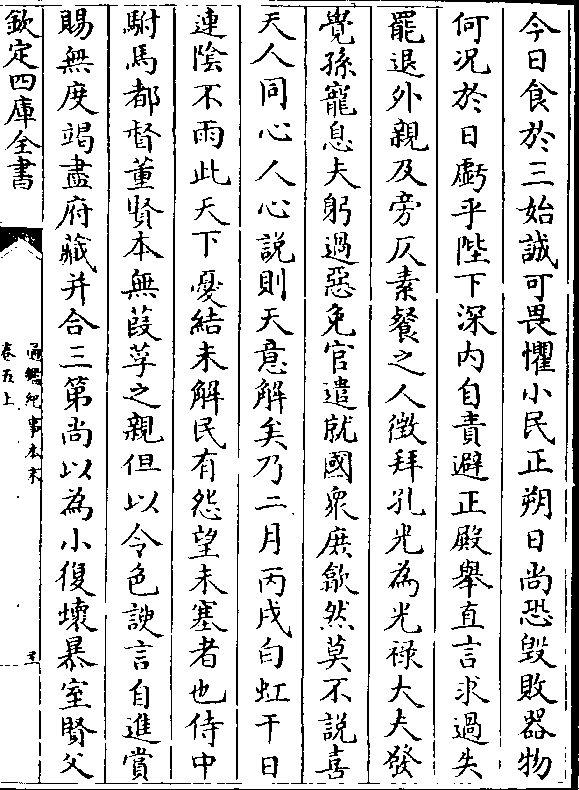 今日食於三始誠可畏懼小民正朔日尚恐毀敗器物
何况於日虧乎陛下深内自責避正殿舉直言求過失
罷退外親及旁仄素餐之人徴拜孔光為光祿大夫發
覺孫寵息夫躬過惡免官遣就國衆庶歙然莫不説喜
天人同心人心説則天意解矣乃二月丙戌白虹干日
連隂不雨此天下憂結未解民有怨望未塞者也侍中
駙馬都督董賢本無葭莩之親但以令色諛言自進賞
賜無度竭盡府藏并合三第尚以為小復壞暴室賢父
欽定四庫全書
通鑑紀事本末
卷五上